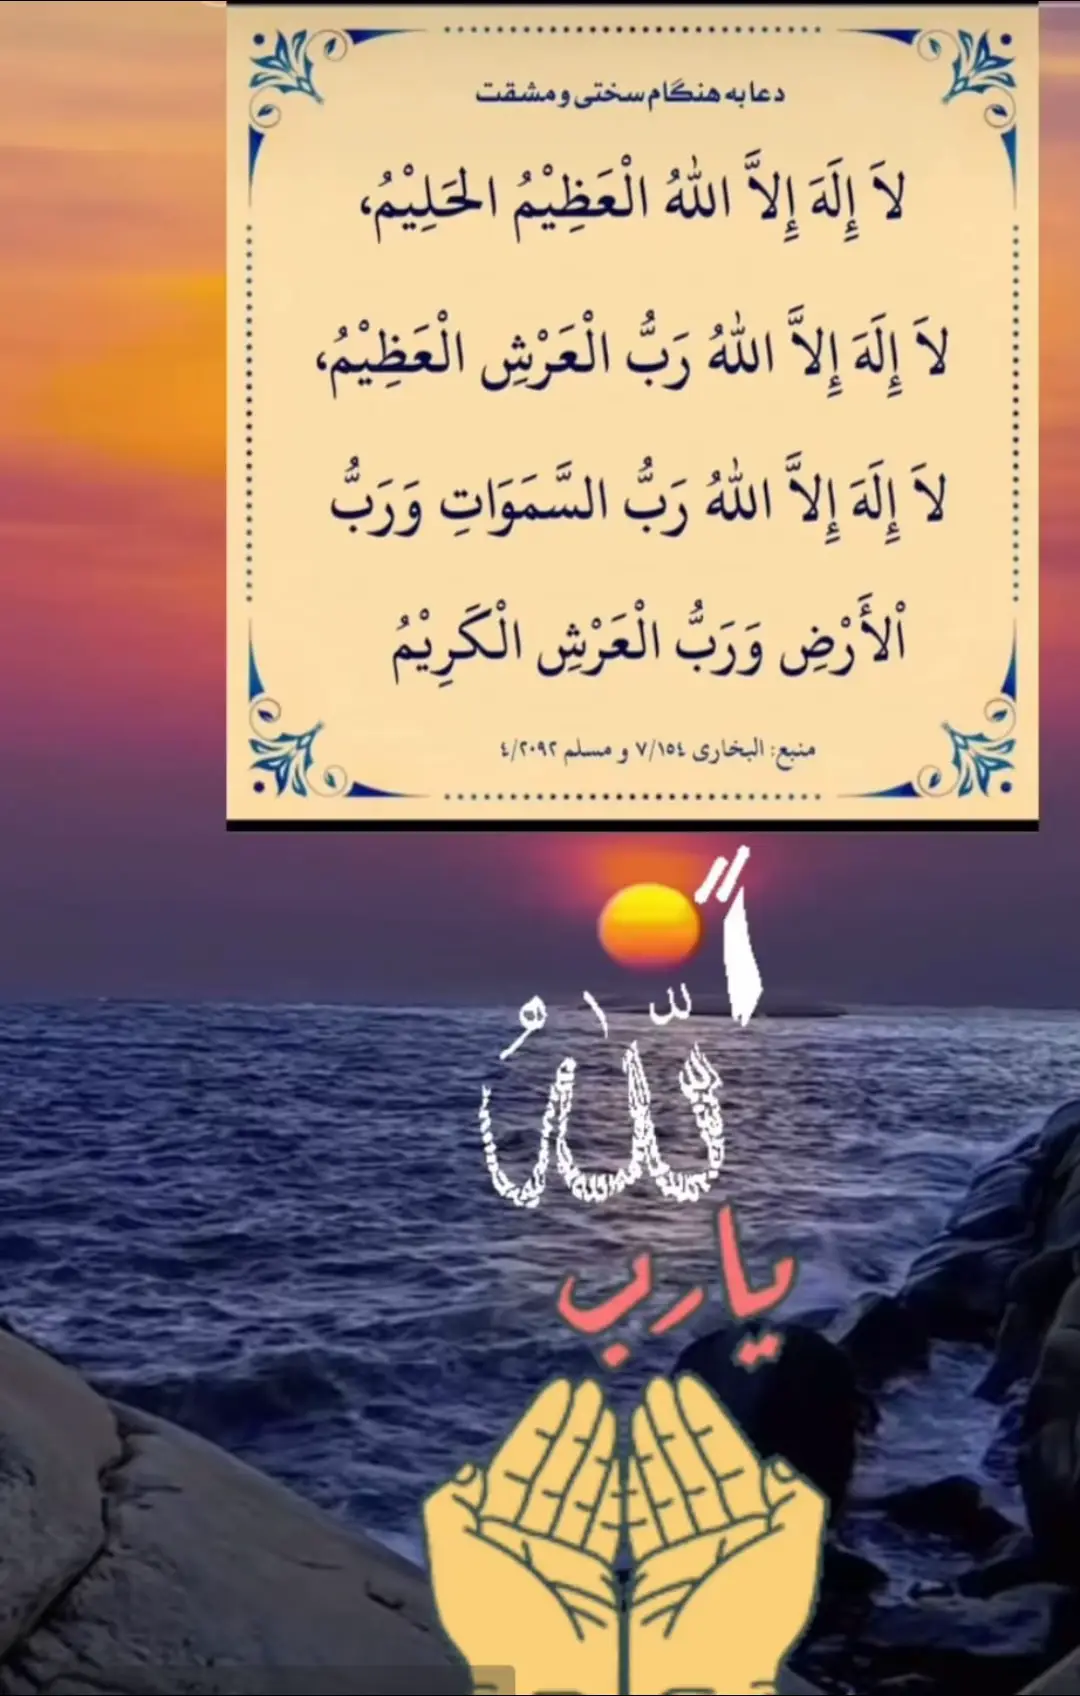 دعا به هنگام سختی و مشقت
لاَ إِلَهَ إِلاَّ اللهُ الْعَظِيْمُ الحَلِيْمُ،
لاَ إِلَهَ إِلاَّ اللهُ رَبُّ الْعَرْشِ الْعَظِيْمُ،
لاَ إِلَهَ إِلاَّ اللهُ رَبُّ السَّمَوَاتِ وَرَبُّ
اْلأَرْضِ وَرَبُّ الْعَرْشِ الْكَرِيْمُ
منبع: البخاری ٧/١٥٤ و مسلم ٤/٢٠٩٢
اللّٰهُ
یا رب